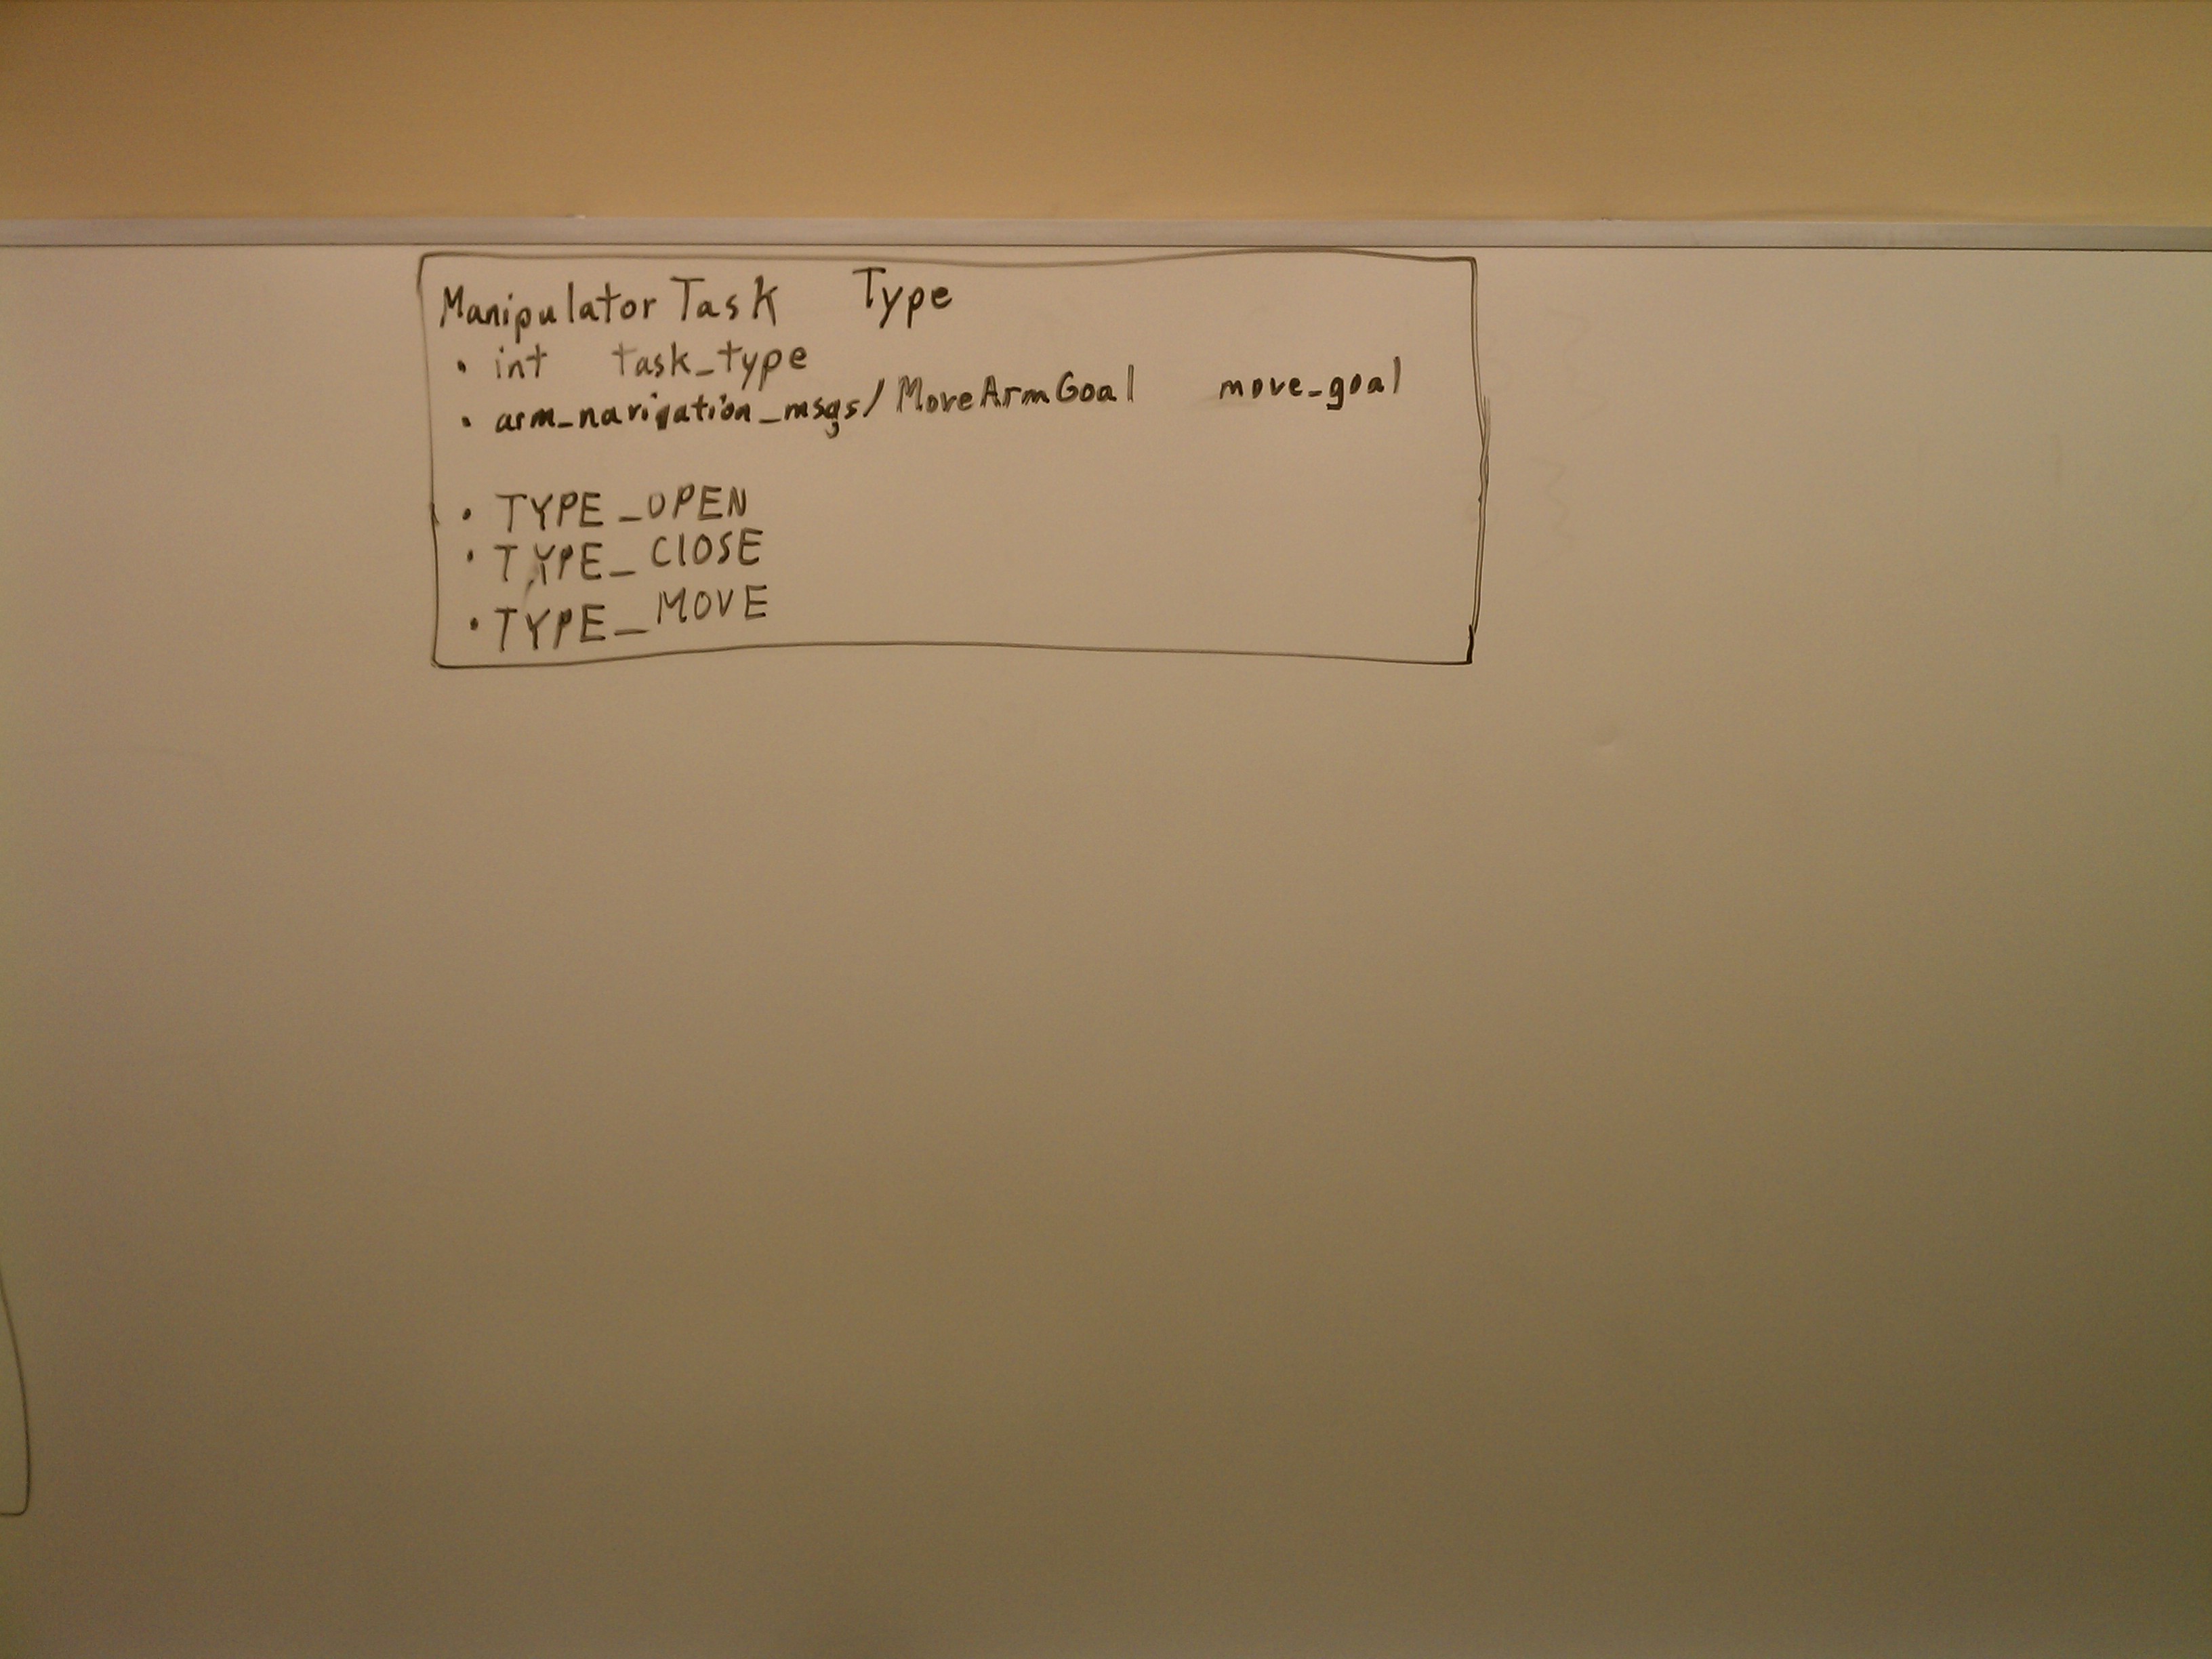 Manipulator Task Type
• int task_type
• arm_navigation_msgs/MoveArmGoal move_goal
• TYPE_OPEN
• TYPE_ClOSE
• TYPE_MOVE